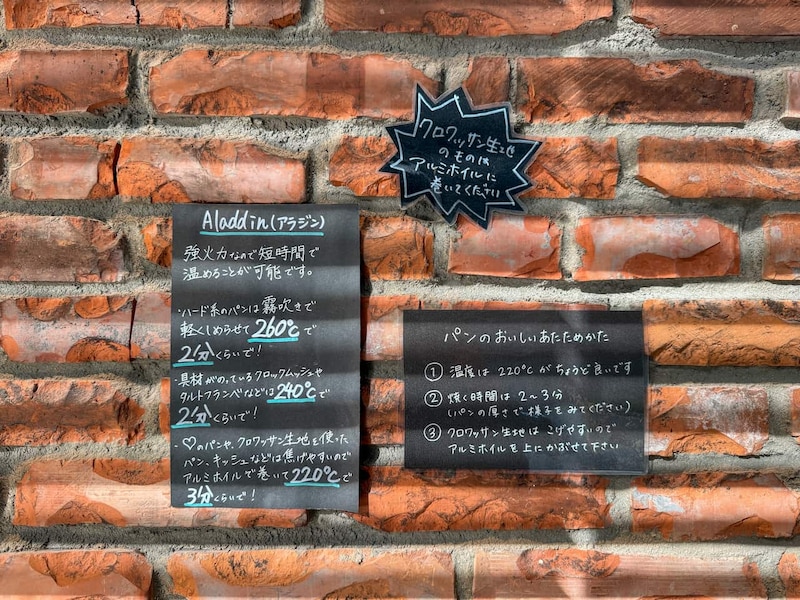 クロワッサン生地
のものは
アルミホイルに
巻いてください
Aladdin(アラジン)
強火力なので短時間で
温めることが可能です。
・ハード系のパンは霧吹きで
軽くしめらせて260℃で
2分くらいで!
・具材がのっているクロックムッシュや
タルトフランベなどは240℃で
2分くらいで!
・♡のパンや、クロワッサン生地を使った
パン、キッシュなどは焦げやすいので
アルミホイルで巻いて220℃で
3分くらいで!
パンのおいしいあたためかた
① 温度は220℃がちょうど良いです
② 焼く時間は2~3分
(パンの厚さで様子をみてください)
③ クロワッサン生地はこげやすいので
アルミホイルを上にかぶせて下さい